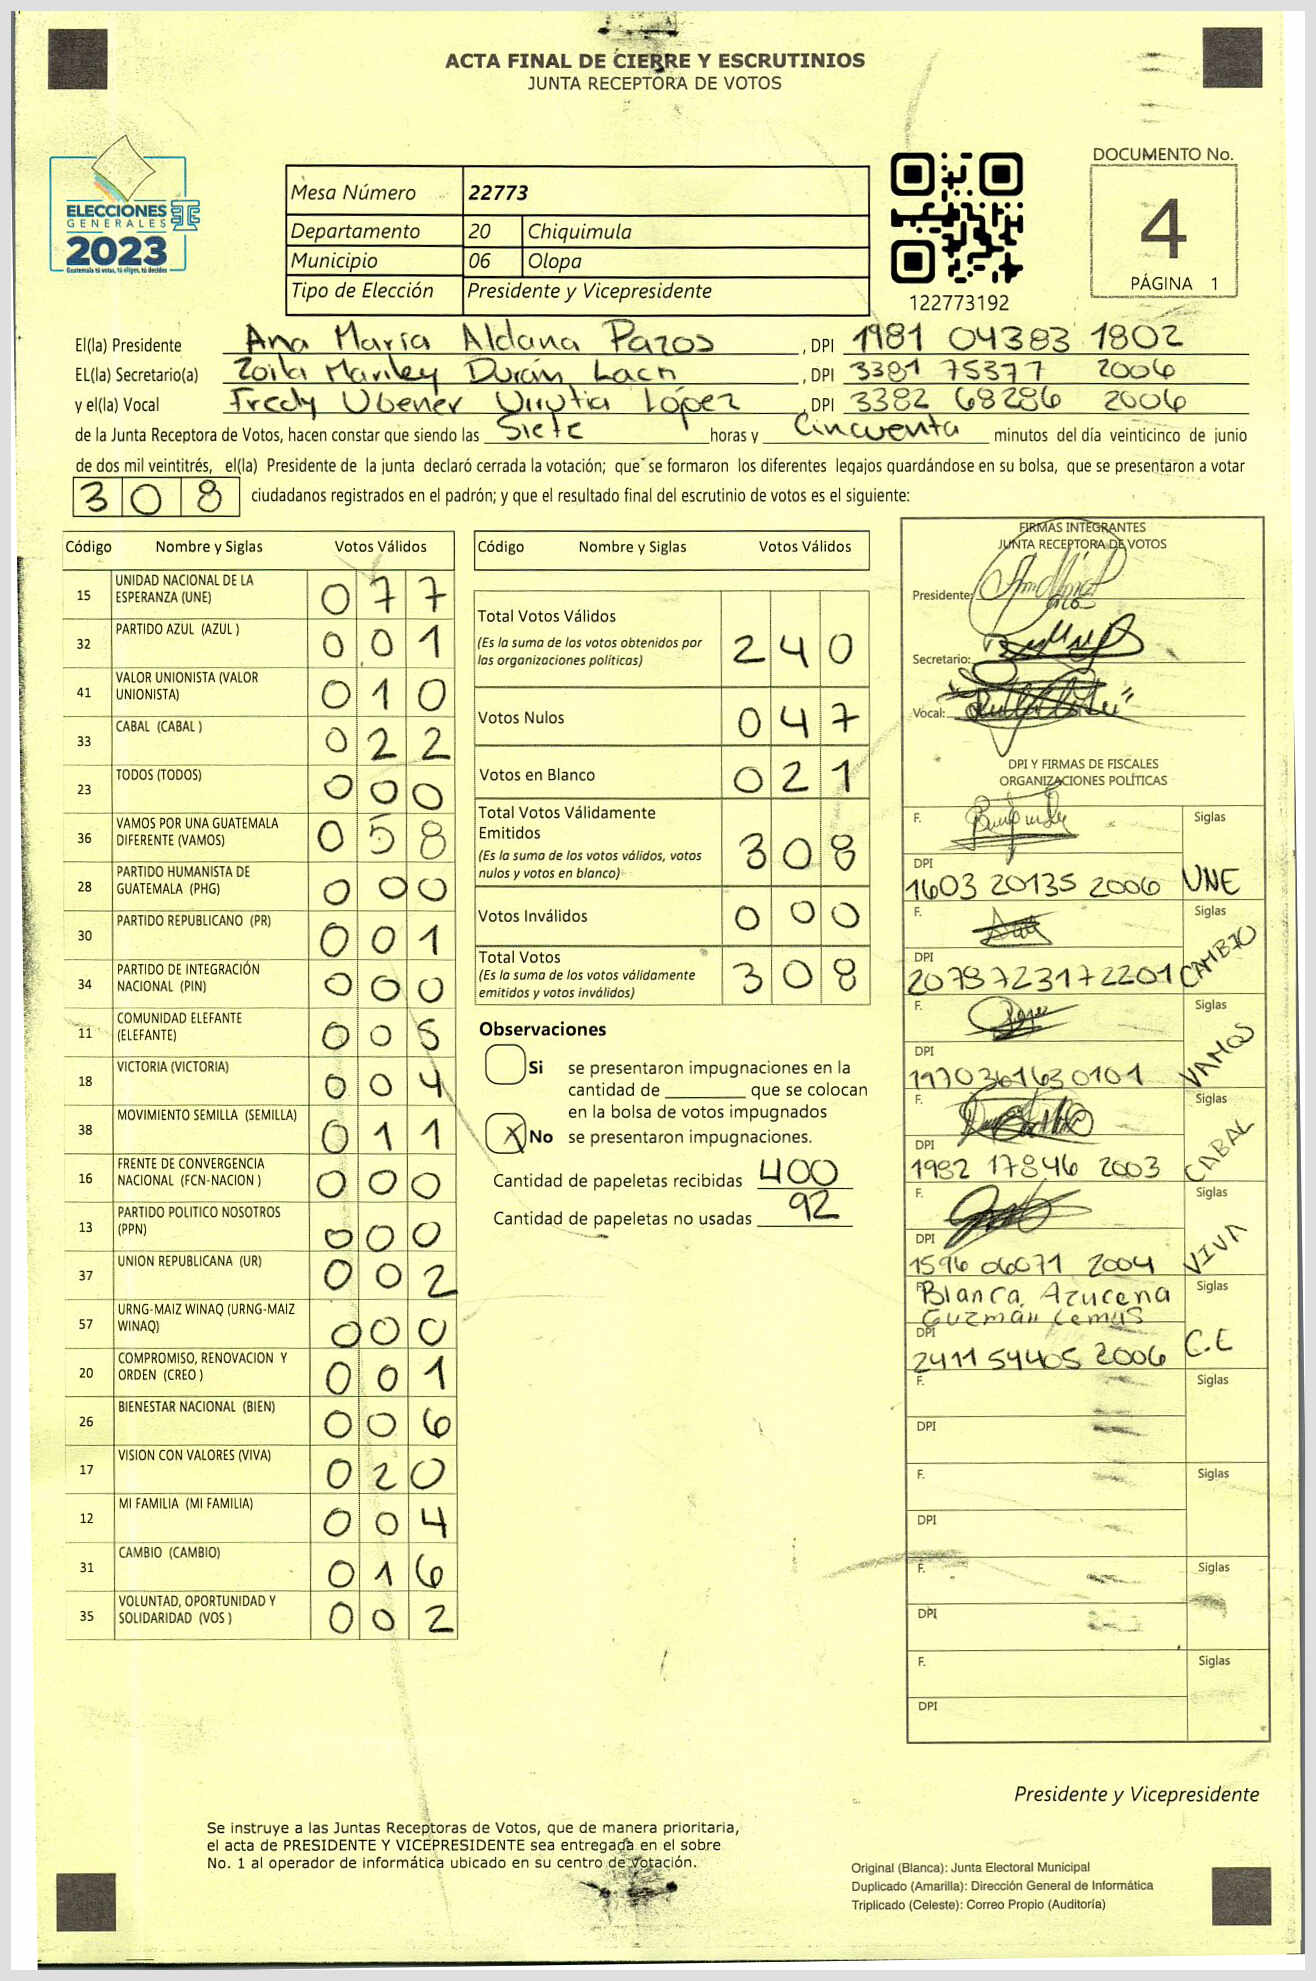 ACTA FINAL DE CIERRE Y ESCRUTINIOS
JUNTA RECEPTORA DE VOTOS
ELECCIONES
GENERALES
2023
Guatemala tú votas, tú eliges, tú decides
Mesa Número 22773
Departamento 20 Chiquimula
Municipio 06 Olopa
Tipo de Elección Presidente y Vicepresidente
122773192
DOCUMENTO No.
4
PÁGINA 1
El(la) Presidente Ana María Aldana Pazos , DPI 1981 04383 1802
EL(la) Secretario(a) Zoila Mariley Durán Lacn , DPI 3381 75377 2006
y el(la) Vocal Fredy Ubener Urrutia López , DPI 3382 68286 2006
de la Junta Receptora de Votos, hacen constar que siendo las Siete horas y Cincuenta minutos del día veinticinco de junio
de dos mil veintitrés, el(la) Presidente de la junta declaró cerrada la votación; que se formaron los diferentes legajos guardándose en su bolsa, que se presentaron a votar
308 ciudadanos registrados en el padrón; y que el resultado final del escrutinio de votos es el siguiente:
Código Nombre y Siglas Votos Válidos
15 UNIDAD NACIONAL DE LA ESPERANZA (UNE) 077
32 PARTIDO AZUL (AZUL ) 001
41 VALOR UNIONISTA (VALOR UNIONISTA) 010
33 CABAL (CABAL ) 022
23 TODOS (TODOS) 000
36 VAMOS POR UNA GUATEMALA DIFERENTE (VAMOS) 058
28 PARTIDO HUMANISTA DE GUATEMALA (PHG) 000
30 PARTIDO REPUBLICANO (PR) 001
34 PARTIDO DE INTEGRACIÓN NACIONAL (PIN) 000
11 COMUNIDAD ELEFANTE (ELEFANTE) 005
18 VICTORIA (VICTORIA) 004
38 MOVIMIENTO SEMILLA (SEMILLA) 011
16 FRENTE DE CONVERGENCIA NACIONAL (FCN-NACION ) 000
13 PARTIDO POLITICO NOSOTROS (PPN) 000
37 UNION REPUBLICANA (UR) 002
57 URNG-MAIZ WINAQ (URNG-MAIZ WINAQ) 000
20 COMPROMISO, RENOVACION Y ORDEN (CREO ) 001
26 BIENESTAR NACIONAL (BIEN) 006
17 VISION CON VALORES (VIVA) 020
12 MI FAMILIA (MI FAMILIA) 004
31 CAMBIO (CAMBIO) 016
35 VOLUNTAD, OPORTUNIDAD Y SOLIDARIDAD (VOS ) 002
Código Nombre y Siglas Votos Válidos
Total Votos Válidos
(Es la suma de los votos obtenidos por las organizaciones políticas) 240
Votos Nulos 047
Votos en Blanco 021
Total Votos Válidamente Emitidos
(Es la suma de los votos válidos, votos nulos y votos en blanco) 308
Votos Inválidos 000
Total Votos
(Es la suma de los votos válidamente emitidos y votos inválidos) 308
Observaciones
Si se presentaron impugnaciones en la
cantidad de ________ que se colocan
en la bolsa de votos impugnados
X No se presentaron impugnaciones.
Cantidad de papeletas recibidas 400
Cantidad de papeletas no usadas 92
FIRMAS INTEGRANTES
JUNTA RECEPTORA DE VOTOS
Presidente:
Secretario:
Vocal:
DPI Y FIRMAS DE FISCALES
ORGANIZACIONES POLÍTICAS
F. Siglas
DPI
1603 20135 2006 UNE
F. Siglas
DPI
2079723172201 CAMBIO
F. Siglas
DPI
1970361630101 VAMOS
F. Siglas
DPI
1982 17846 2003 CABAL
F. Siglas
DPI
1596 06071 2004 VIVA
F. Blanca Azucena Siglas
Guzmán Lemus
DPI
2411 54405 2006 C.E
F. Siglas
DPI
F. Siglas
DPI
F. Siglas
DPI
F. Siglas
DPI
Presidente y Vicepresidente
Se instruye a las Juntas Receptoras de Votos, que de manera prioritaria,
el acta de PRESIDENTE Y VICEPRESIDENTE sea entregada en el sobre
No. 1 al operador de informática ubicado en su centro de votación.
Original (Blanca): Junta Electoral Municipal
Duplicado (Amarilla): Dirección General de Informática
Triplicado (Celeste): Correo Propio (Auditoría)